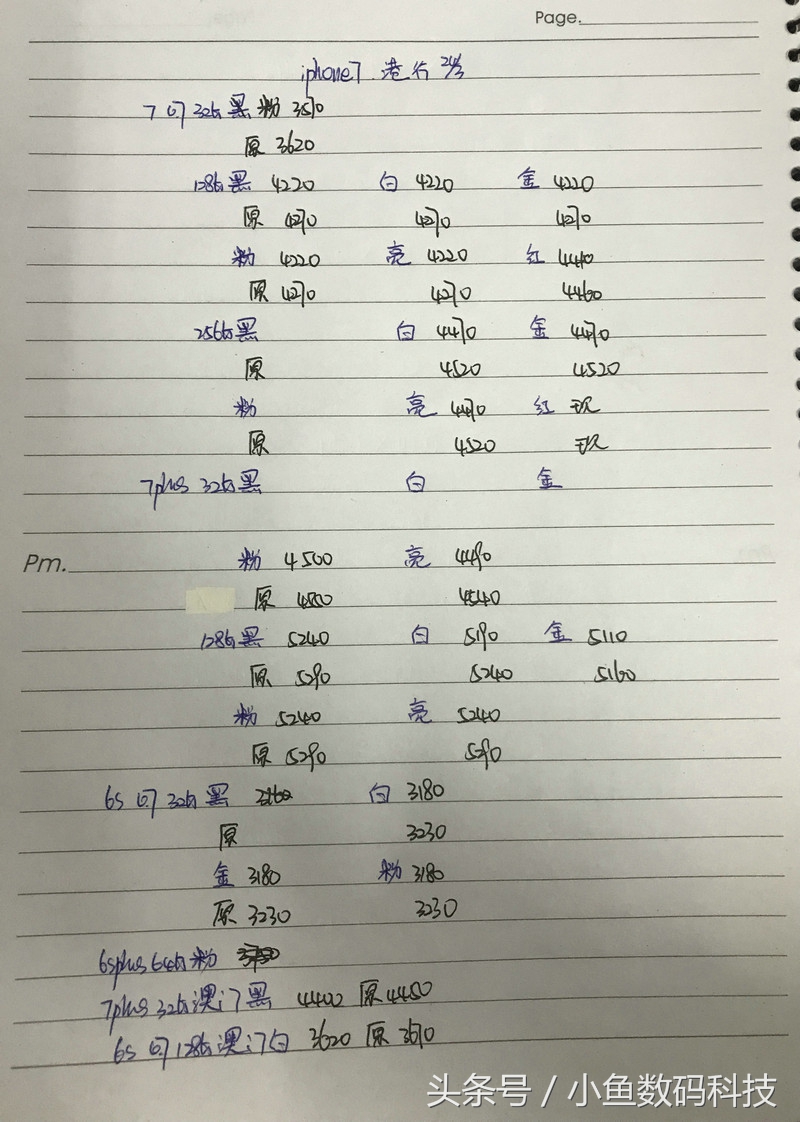 Page.
iphone7 港行 24/3
7 4.7 32G 黑 粉 3570
原 3620
128G 黑 4220 白 4220 金 4220
原 4270 4270 4270
粉 4220 亮 4220 红 4410
原 4270 4270 4460
256G 黑 白 4470 金 4470
原 4520 4520
粉 亮 4470 红 现
原 4520 现
7plus 32G 黑 白 金
Pm.
粉 4500 亮 4490
原 4550 4540
128G 黑 5240 白 5190 金 5110
原 5290 5240 5160
粉 5240 亮 5240
原 5290 5290
6s 4.7 32G 黑 白 3180
原 3230
金 3180 粉 3180
原 3230 3230
6splus 64G 粉
7plus 32G 澳门 黑 4400 原 4450
6s 4.7 128G 澳门 白 3620 原 3670
头条号 / 小鱼数码科技